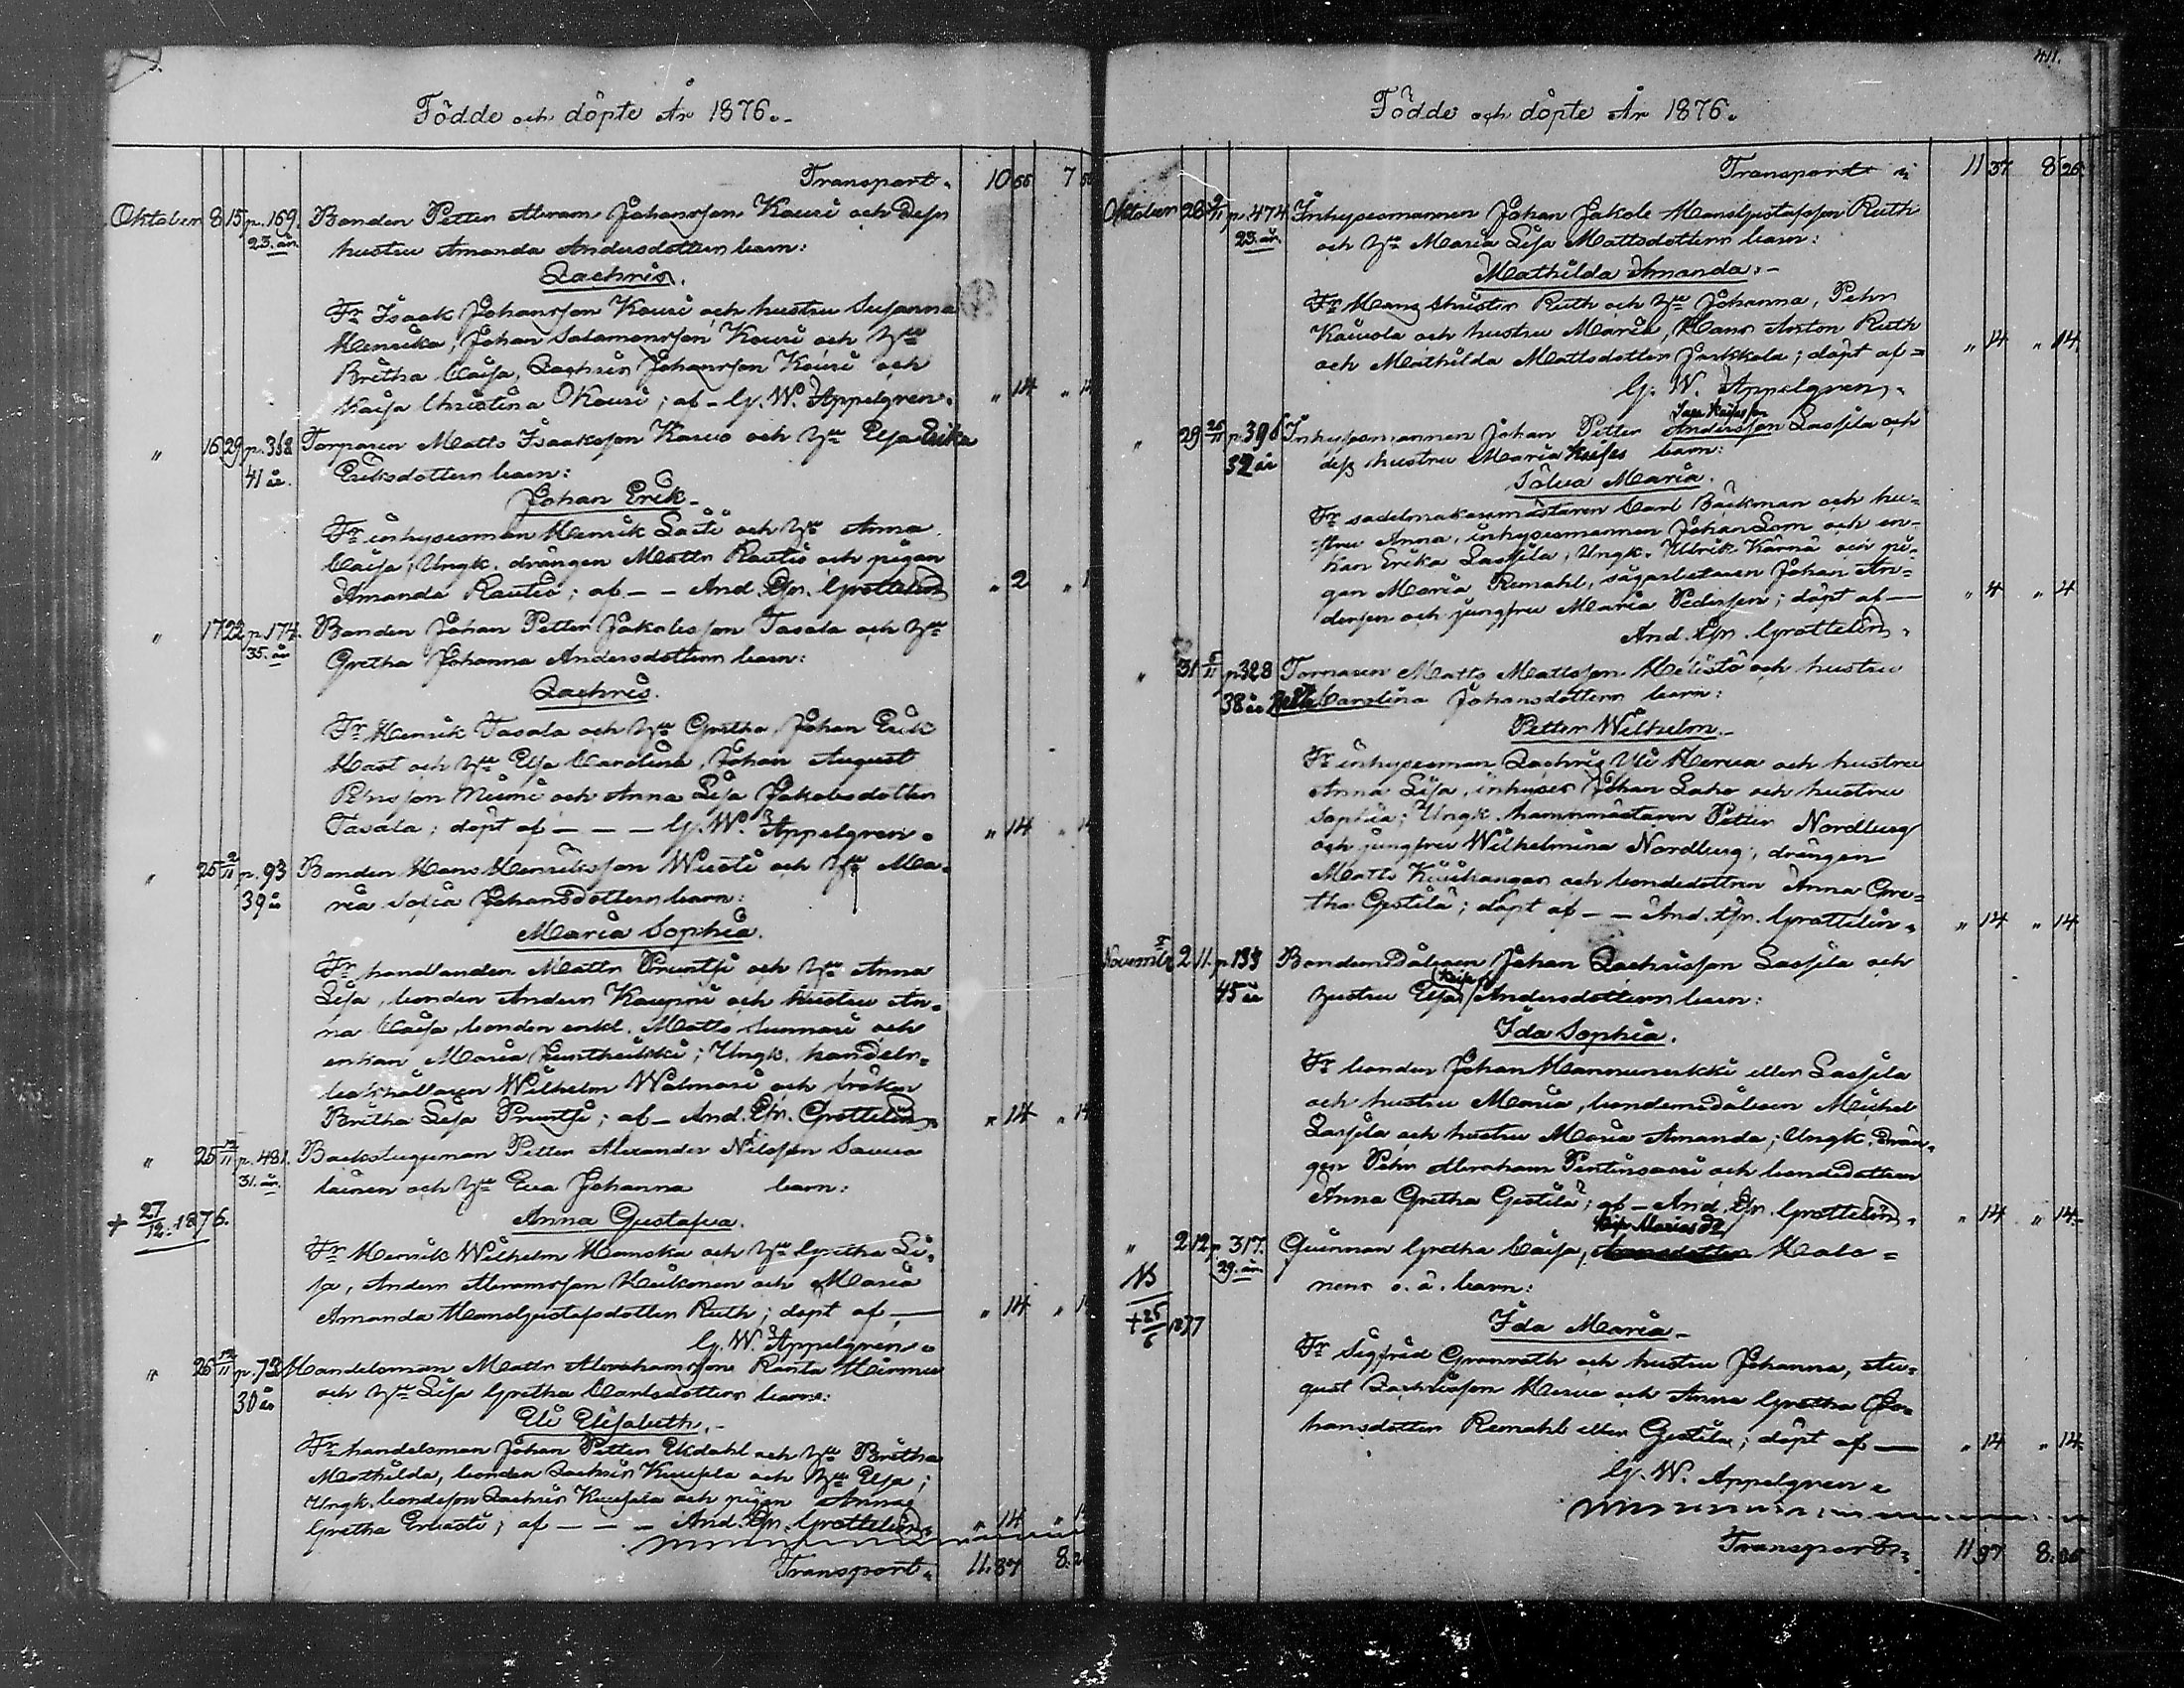 Födde och döpte År 1876.
Transport. 10 55 7
Oktober 8 15 p. 169. Bonden Petter Abram Johansson Kouri och dess
23. år. hustru Amanda Andersdotters barn:
Zachris.
Fr Isaak Johansson Kouri och hustru Susanna
Henrika, Johan Salomonsson Kouri och H:u
Britha Caisa, Zachris Johansson Kouri och
Kaisa Christina OKouri; af - G. W. Appelgren. " 14 "
" 16 29 p. 358 Torparen Matts Isaaksson Kario och H:u Elsa Erika
41 år. Eriksdotters barn:
Johan Erik
Fr inhysesman Henrik Laiti och H:u Anna
Caisa, Ungk. drängen Matts Rautio och pigan
Amanda Rautio; af - - And. Efr. Grottelin " 2 "
" 17 22 p. 174. Bonden Johan Petter Jakobsson Tasala och H:u
35. år Gretha Johanna Andersdotters barn:
Zachris.
Fr Henrik Tasala och H:u Gretha, Johan Erik
Mast och H:u Elsa Carolina, Johan August
Pehrsson Niemi och Anna Lisa Jakobsdotter
Tasala; döpt af - - - G. W. Appelgren. " 14 "
" 25 2/11 p. 93 Bonden Hans Henriksson Wuoti och H:u Ma-
39 år ria Sofia Johansdotters barn:
Maria Sophia.
Fr handlanden Matts Pruntsi och H:u Anna
Lisa, bonden Anders Kauppi och hustru An-
na Caisa, bonden enkl. Matts Sunnari och
enkan Maria ; Ungk. handels-
bokhållaren Wilhelm Walmari och fröken
Britha Lisa Pruntsi; af - And. Efr. Grottelin. " 14 "
" 25 12/11 p. 481. Backstuguman Petter Alexander Nilsson Savua
31. år. lainen och H:u Eva Johanna barn:
+ 27/12. 1876. Anna Gustafva.
Fr Henrik Wilhelm Hanska och H:u Gretha Li-
sa, Anders Abramsson Heikonen och Maria
Amanda Hansgustafsdotter Ruth; döpt af — " 14 "
G. W. Appelgren.
" 26 12/11 p. 73 Handelsman Matts Abrahamsson Ranta Hirmu
30 år och H:u Lisa Gretha Carlsdotters barn:
Eli Elisabeth.
Fr handelsman Johan Petter Ekdahl och H:u Britha
Mathilda, bonden Zachris Kuusela och H:u Elsa;
Ungk. bondeson Zachris Kuusela och pigan Anna
Gretha Erkasti; af - - - And. Efr. Grottelin. " 14 "
Transport. 11. 37 8.
411.
Födde och döpte År 1876.
Transport 11 37 8 26
Oktober 28 2/11 p. 474 Inhysesmannen Johan Jakob Hansgustafsson Ruth
23. år. och H:u Maria Lisa Mattsdotters barn:
Mathilda Amanda.-
Fr Hans Christer Ruth och H:u Johanna, Pehr
Kaivola och hustru Maria, Hans Anton Ruth
och Mathilda Mattsdotter Junkkala; döpt af - " 14 " 14
G. W. Appelgren.
" 29 26/11 p. 396 Inhysesmannen Johan Petter Andersson Lassila och
32 år dess hustru Maria Kaisas barn:
Tölva Maria.
Fr sadelmakaremästaren Carl Bäckman och hu-
stru Anna, inhysesmannen Johan Lom och en-
kan Erika Lassila, Ungk. Ulrik Kärnä och pi-
gan Maria Remahl, sågarbetaren Johan An-
dersen och jungfru Maria Pedersen; döpt af — " 4 " 4
And. Efr. Grottelin.
" 31 5/11 p 328 Torparen Matts Mattsson Heistö och hustru
38 år Carolina Johansdotters barn:
Petter Wilhelm.-
Fr inhysesman Zachris Yli Herva och hustru
Anna Lisa, inhyses Johan Laho och hustru
Sophia; Ungk. hamnmästaren Petter Nordberg
och jungfru Wilhelmina Nordberg, drängen
Matts Kiiskangas och bondedottren Anna Gre-
tha Gestilä; döpt af - - And. Efr. Grottelin. " 14 " 14
November 2 11. p. 133 Bondemedålären Johan Zachrisson Lassila och
45 år hustru Elsas Andersdotters barn:
Ida Sophia.
Fr bonden Johan Hannunerkki eller Lassila
och hustru Maria, bondemedålären Mickel
Lassila och hustru Maria Amanda; Ungk. drän-
gen Pehr Abraham Pentinsaari och bondedottren
Anna Gretha Gestilä; af - And. Efr. Grottelin. " 14 " 14
Kajs. Marias d2
" 2 12 p. 317. Qvinnan Gretha Caisa, Halo-
NB 29. år. nens o. ä. barn:
+ 25/6 1877 Ida Maria -
Fr Sigfrid Granroth och hustru Johanna, Au-
gust Zachrisson Herva och Anna Gretha Jo-
hansdotter Remahl eller Gestilä; döpt af — " 14 " 14
G. W. Appelgren.
Transport. 11 97 8. 86